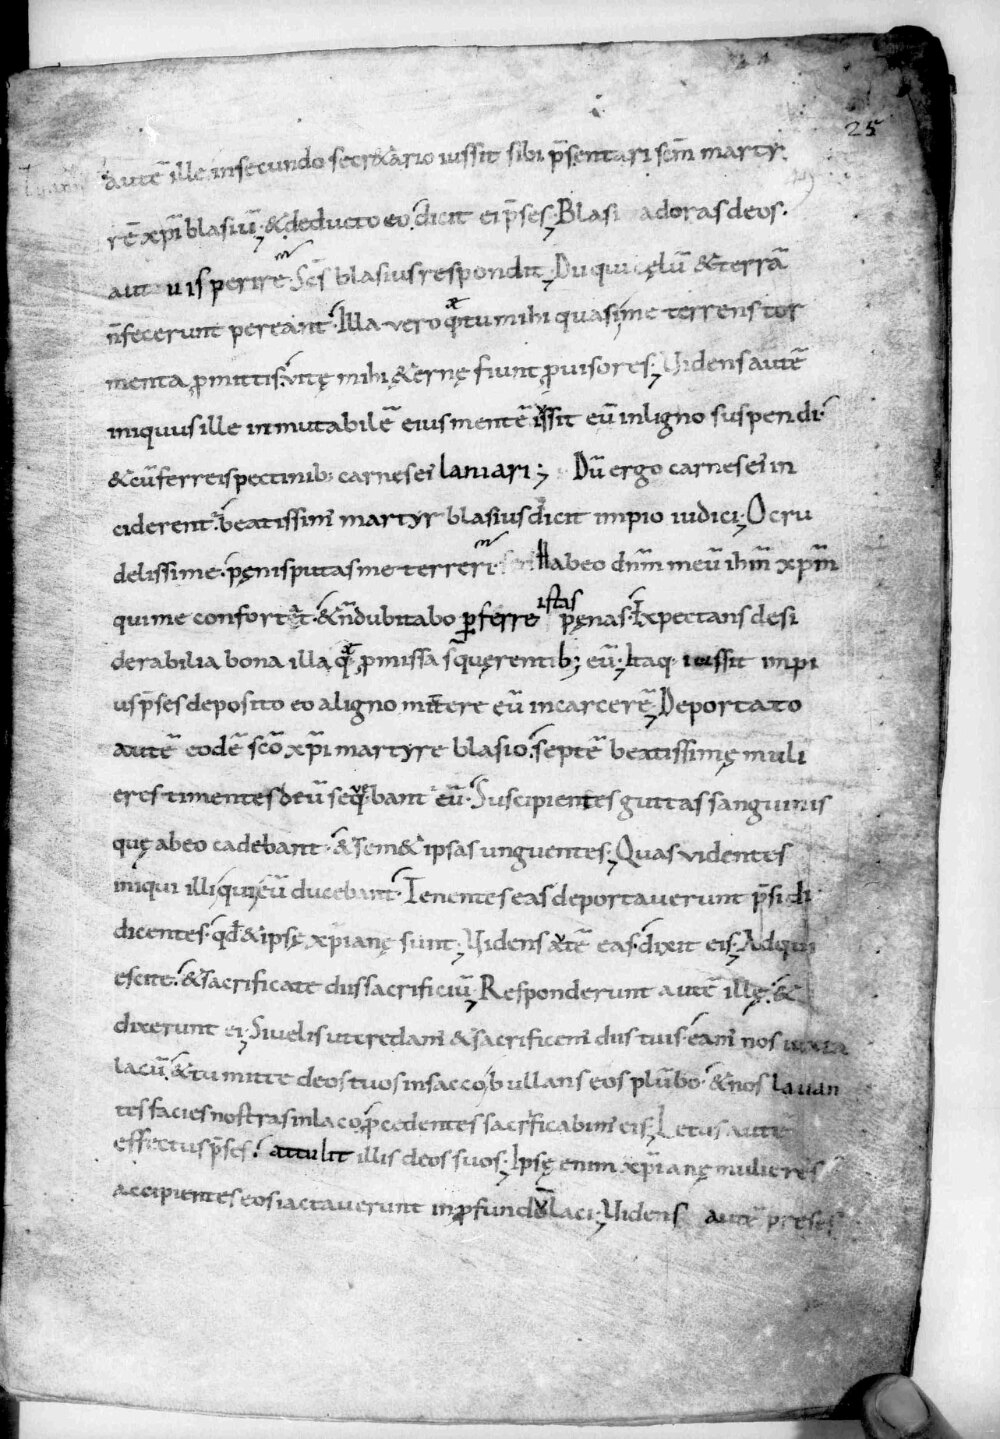 25
autē ille insecundo secrætario iussit sibi p̄sentari scm̄ marty
rē xp̄i blasiū; & deducto eo dicit ei p̄ses; Blasi adoras deos.
aut uis perire. Sc̄s blasius respondit; Dii qui cęlū & terrā
n̄ fecerunt pereant. Illa vero quæ tu mihi quasi me terrens tor
menta promittis. vitę mihi & ernę fiunt prouisores; Videns autē
iniquus ille inmutabilē eius mentē iussit eū inligno suspendi.
& cū ferreis pectinib: carnes ei laniari; Dū ergo carnes ei in
ciderent. beatissim' martyr blasius dicit impio iudici; O cru
delissime. pęnis putas me terreri. Habeo dn̄m meū ih̄m xp̄m
istas
qui me confortat. & n̄ dubitabo perferre pęnas. Expectans desi
derabilia bona illa quæ promissa s̄ quęrentib; eū; Itaq· iussit impi
us p̄ses deposito eo aligno mittere eū incarcerē; Deportato
autē eodē sc̄o xp̄i martyre blasio. septē beatissimę muli
eres timentes deū sequebant eū. Suscipientes guttas sanguinis
quę abeo cadebant. & sem& ipsas unguentes; Quas videntes
iniqui illi qui eū ducebant. Tenentes eas deportaverunt p̄sidi
dicentes. qd̄ & ipsę xp̄ianę sunt; Videns autē eas. dixit eis; Adqui
escite. & sacrificate diis sacrificiū; Responderunt autē illę. &
dixerunt ei; Si velis ut credam' & sacrificem' diis tuis. eam' nos iuxta
lacū. & tu mitte deos tuos insacco, bullans eos plūbo. & nos lavan
tes facies nostras inlaco procedentes sacrificabim' eis; Letus autē
effectus p̄ses. attulit illis deos suos; Ipsę enim xp̄ianę mulieres
accipientes eos iactaverunt in profundū laci; Videns autē preses